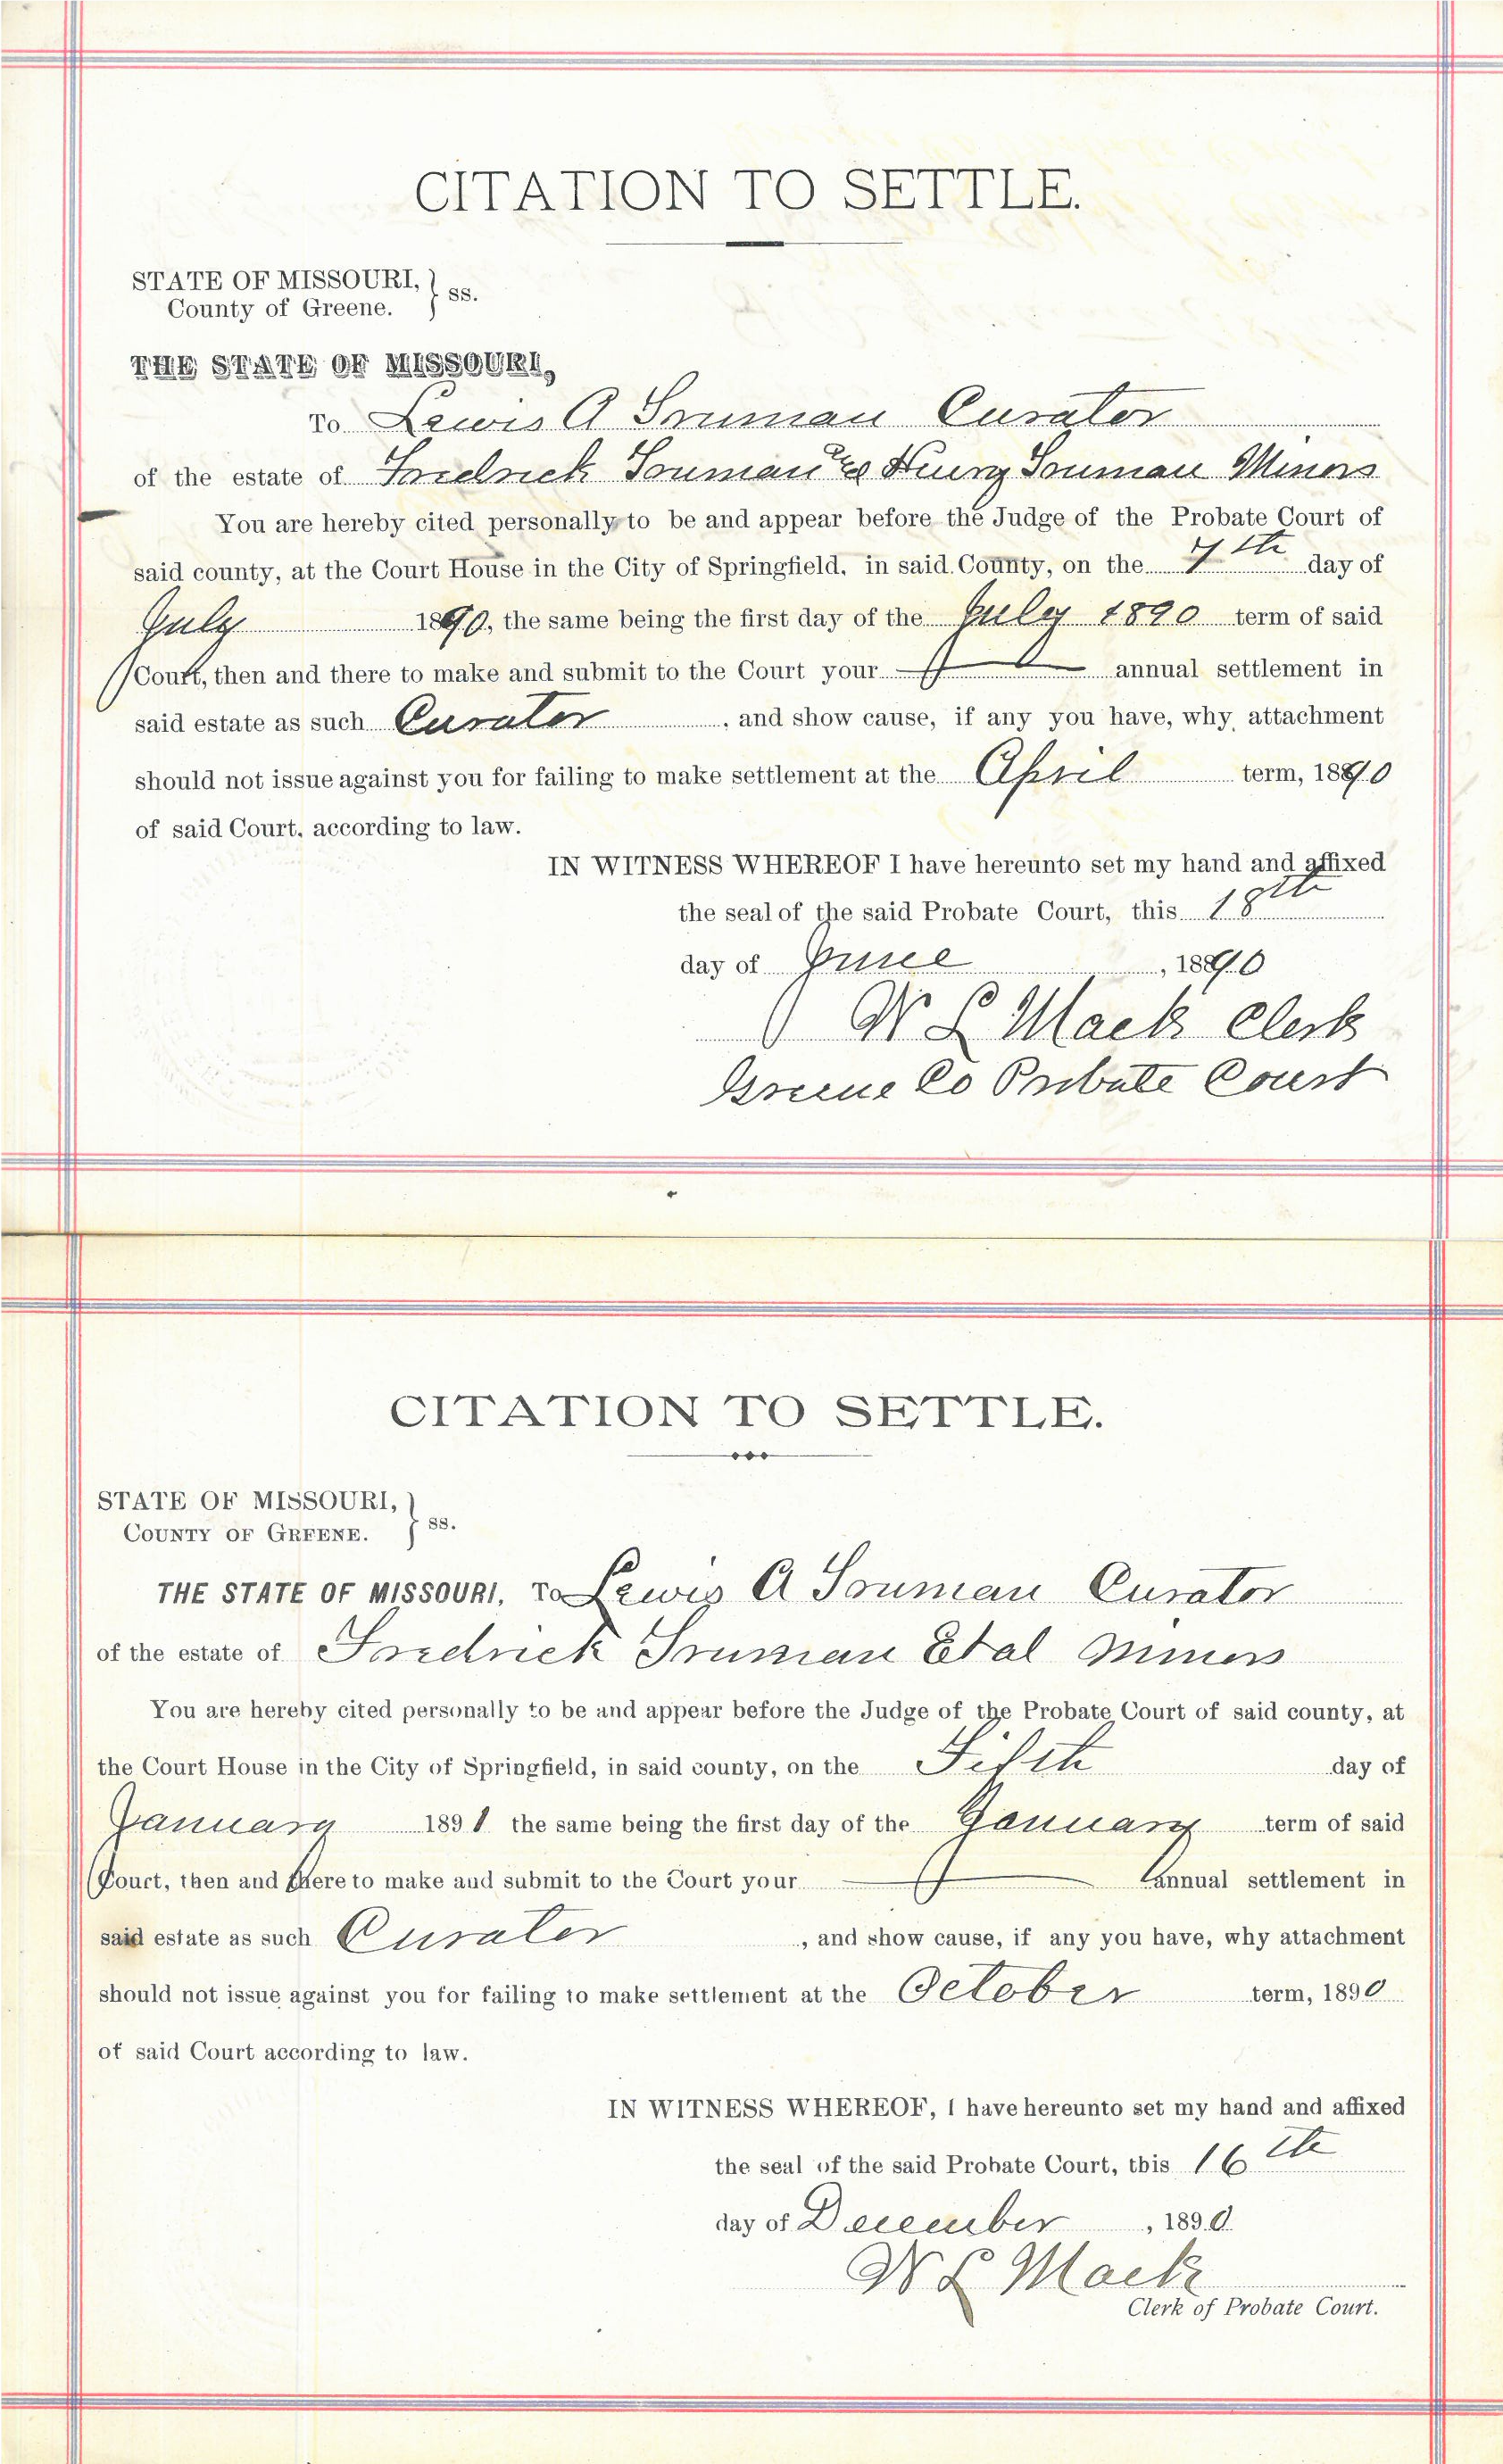 CITATION TO SETTLE.
STATE OF MISSOURI, } ss.
County of Greene.
THE STATE OF MISSOURI,
To Lewis A Truman Curator
of the estate of Fredrick Truman & Henry Truman Minors
You are hereby cited personally to be and appear before the Judge of the Probate Court of
said county, at the Court House in the City of Springfield, in said County, on the 7th day of
July 1890, the same being the first day of the July 1890 term of said
Court, then and there to make and submit to the Court your annual settlement in
said estate as such Curator, and show cause, if any you have, why attachment
should not issue against you for failing to make settlement at the April term, 1890
of said Court, according to law.
IN WITNESS WHEREOF I have hereunto set my hand and affixed
the seal of the said Probate Court, this 18th
day of June, 1890
W L Mack Clerk
Greene Co Probate Court
CITATION TO SETTLE.
STATE OF MISSOURI, } ss.
COUNTY OF GREENE.
THE STATE OF MISSOURI, To Lewis A Truman Curator
of the estate of Fredrick Truman Et al Minors
You are hereby cited personally to be and appear before the Judge of the Probate Court of said county, at
the Court House in the City of Springfield, in said county, on the Fifth day of
January 1891 the same being the first day of the January term of said
Court, then and there to make and submit to the Court your annual settlement in
said estate as such Curator, and show cause, if any you have, why attachment
should not issue against you for failing to make settlement at the October term, 1890
of said Court according to law.
IN WITNESS WHEREOF, I have hereunto set my hand and affixed
the seal of the said Probate Court, this 16th
day of December, 1890
W L Mack
Clerk of Probate Court.